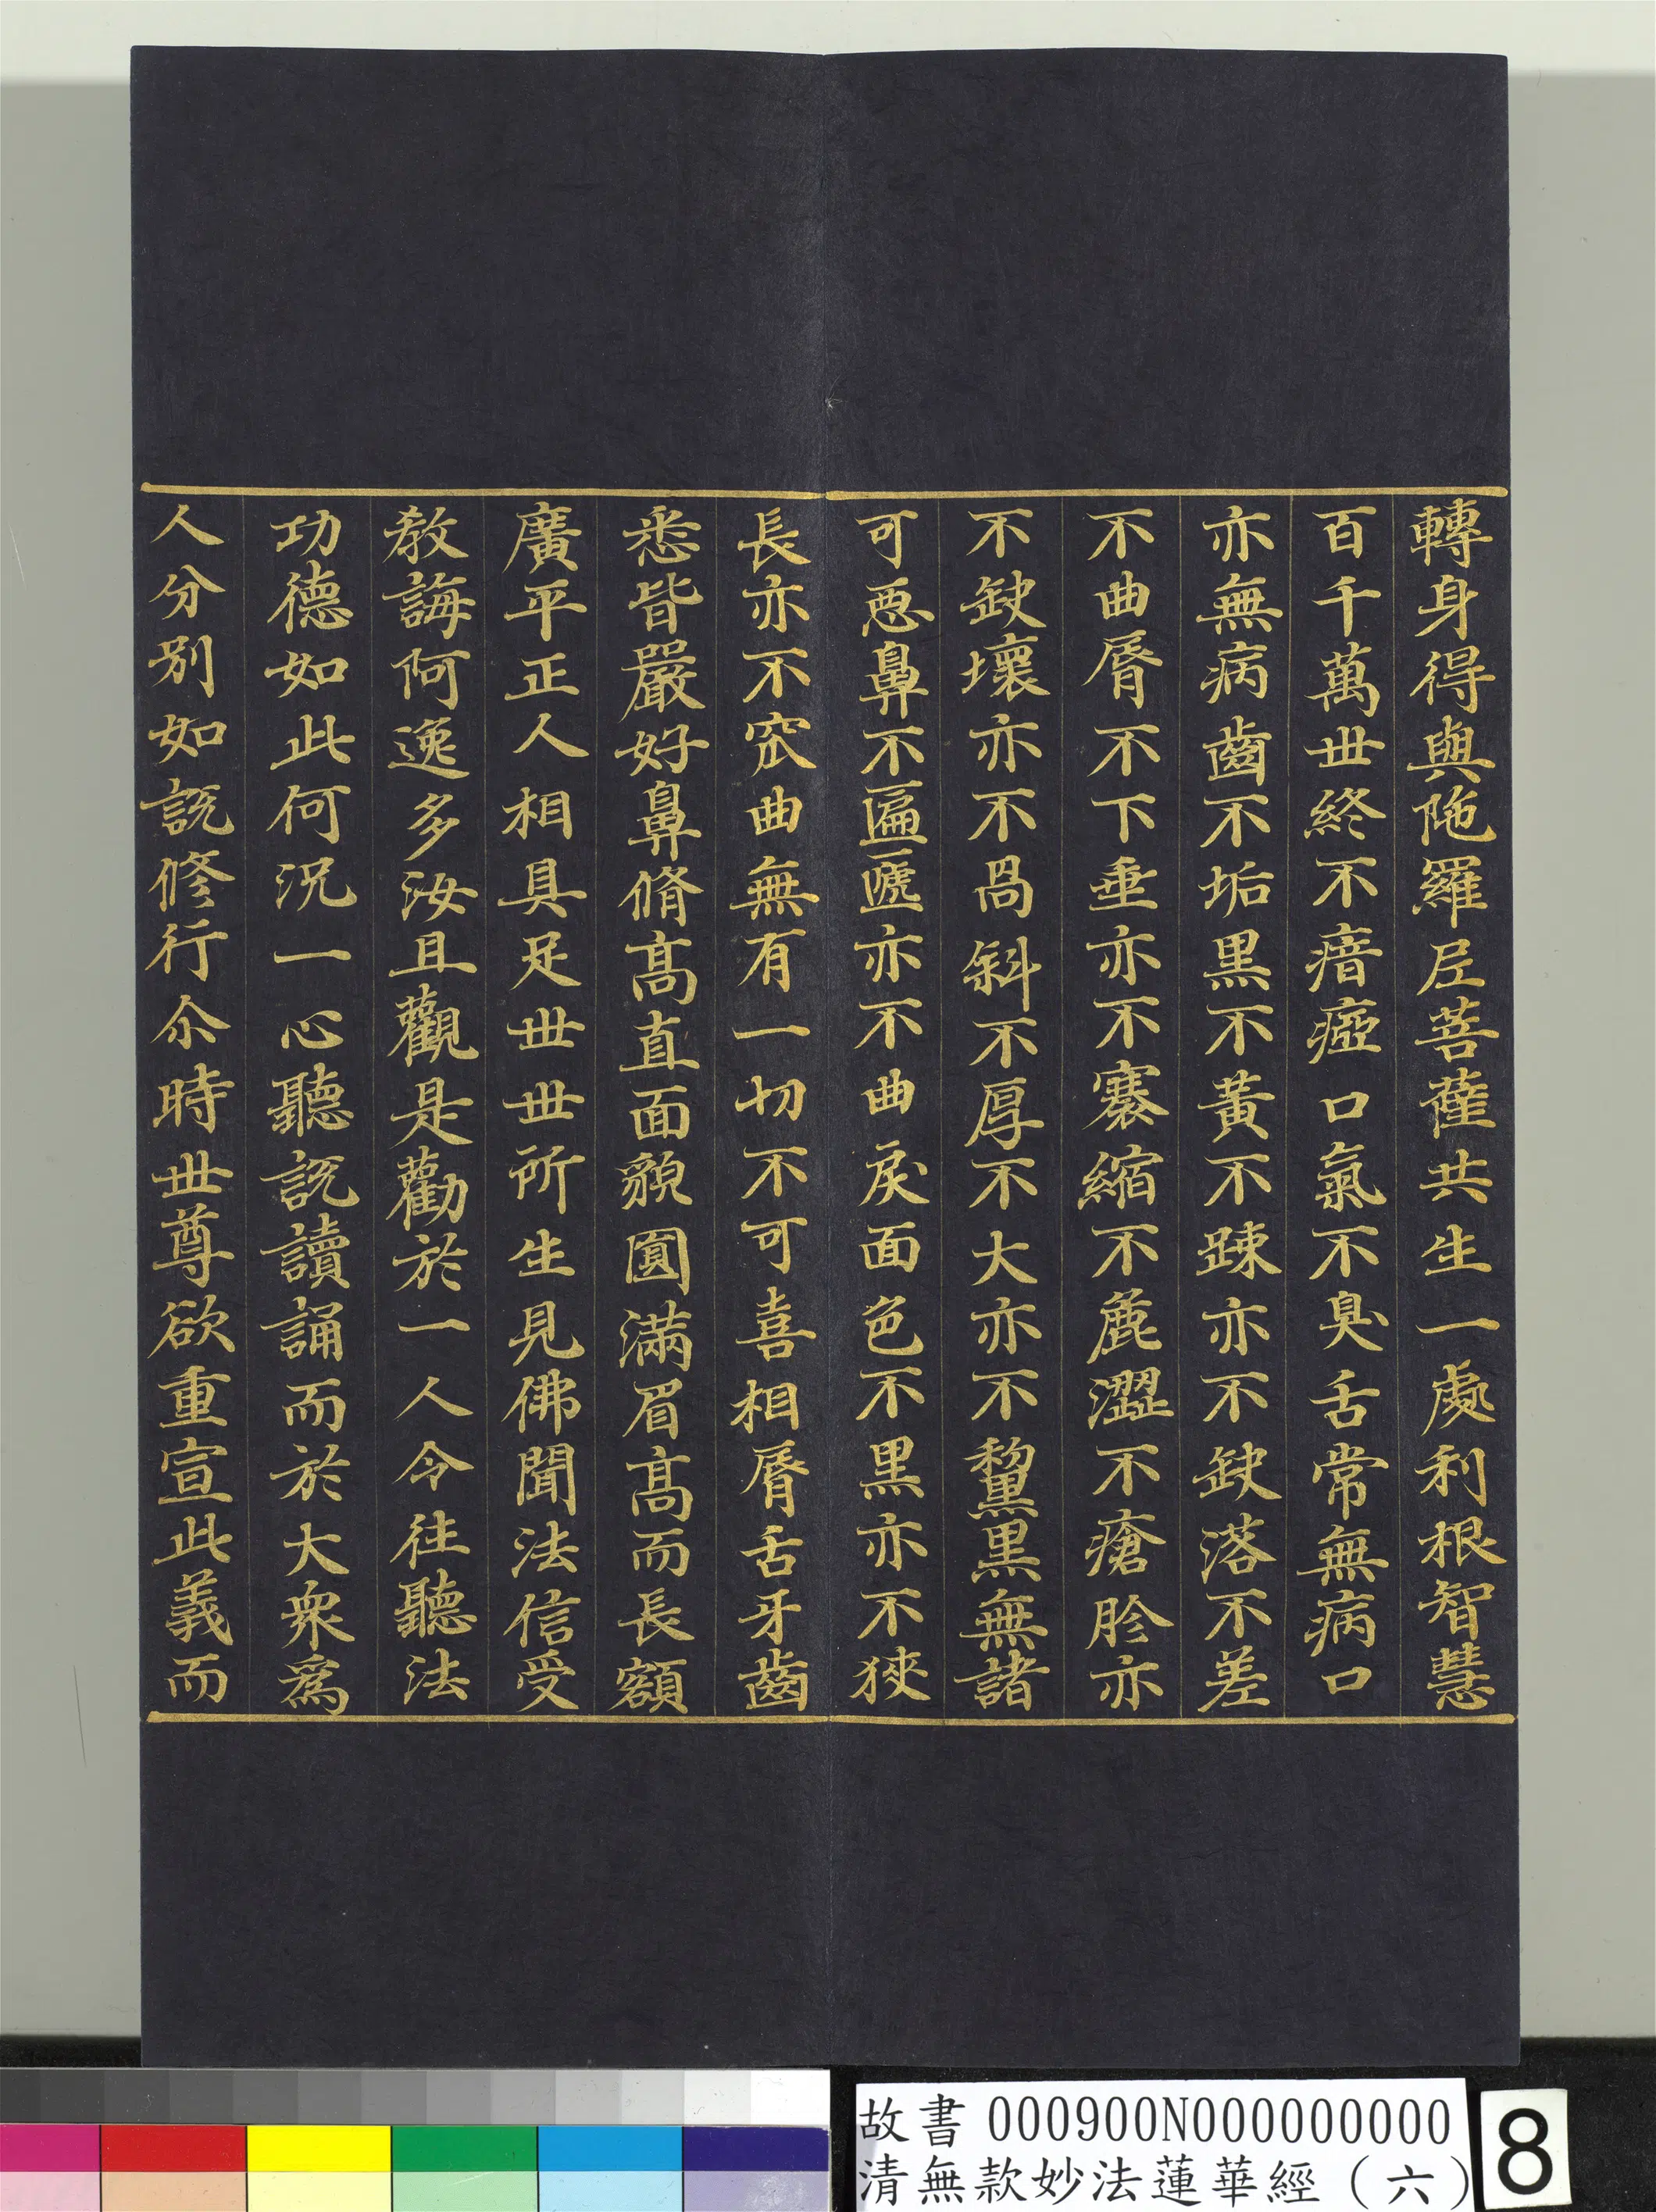 轉身得與陁羅尼菩薩共生一處利根智慧
百千萬世終不瘖瘂口氣不臭舌常無病口
亦無病齒不垢黑不黃不踈亦不缺落不差
不曲脣不下垂亦不褰縮不麁澀不瘡胗亦
不缺壞亦不喎斜不厚不大亦不黧黑無諸
可惡鼻不匾㔸亦不曲戾面色不黑亦不狹
長亦不窊曲無有一切不可喜相脣舌牙齒
悉皆嚴好鼻脩高直面貌圓滿眉高而長額
廣平正人相具足世世所生見佛聞法信受
教誨阿逸多汝且觀是勸於一人令往聽法
功德如此何況一心聽說讀誦而於大衆爲
人分別如說修行尒時世尊欲重宣此義而
故書 000900N000000000
清無款妙法蓮華經（六）
8